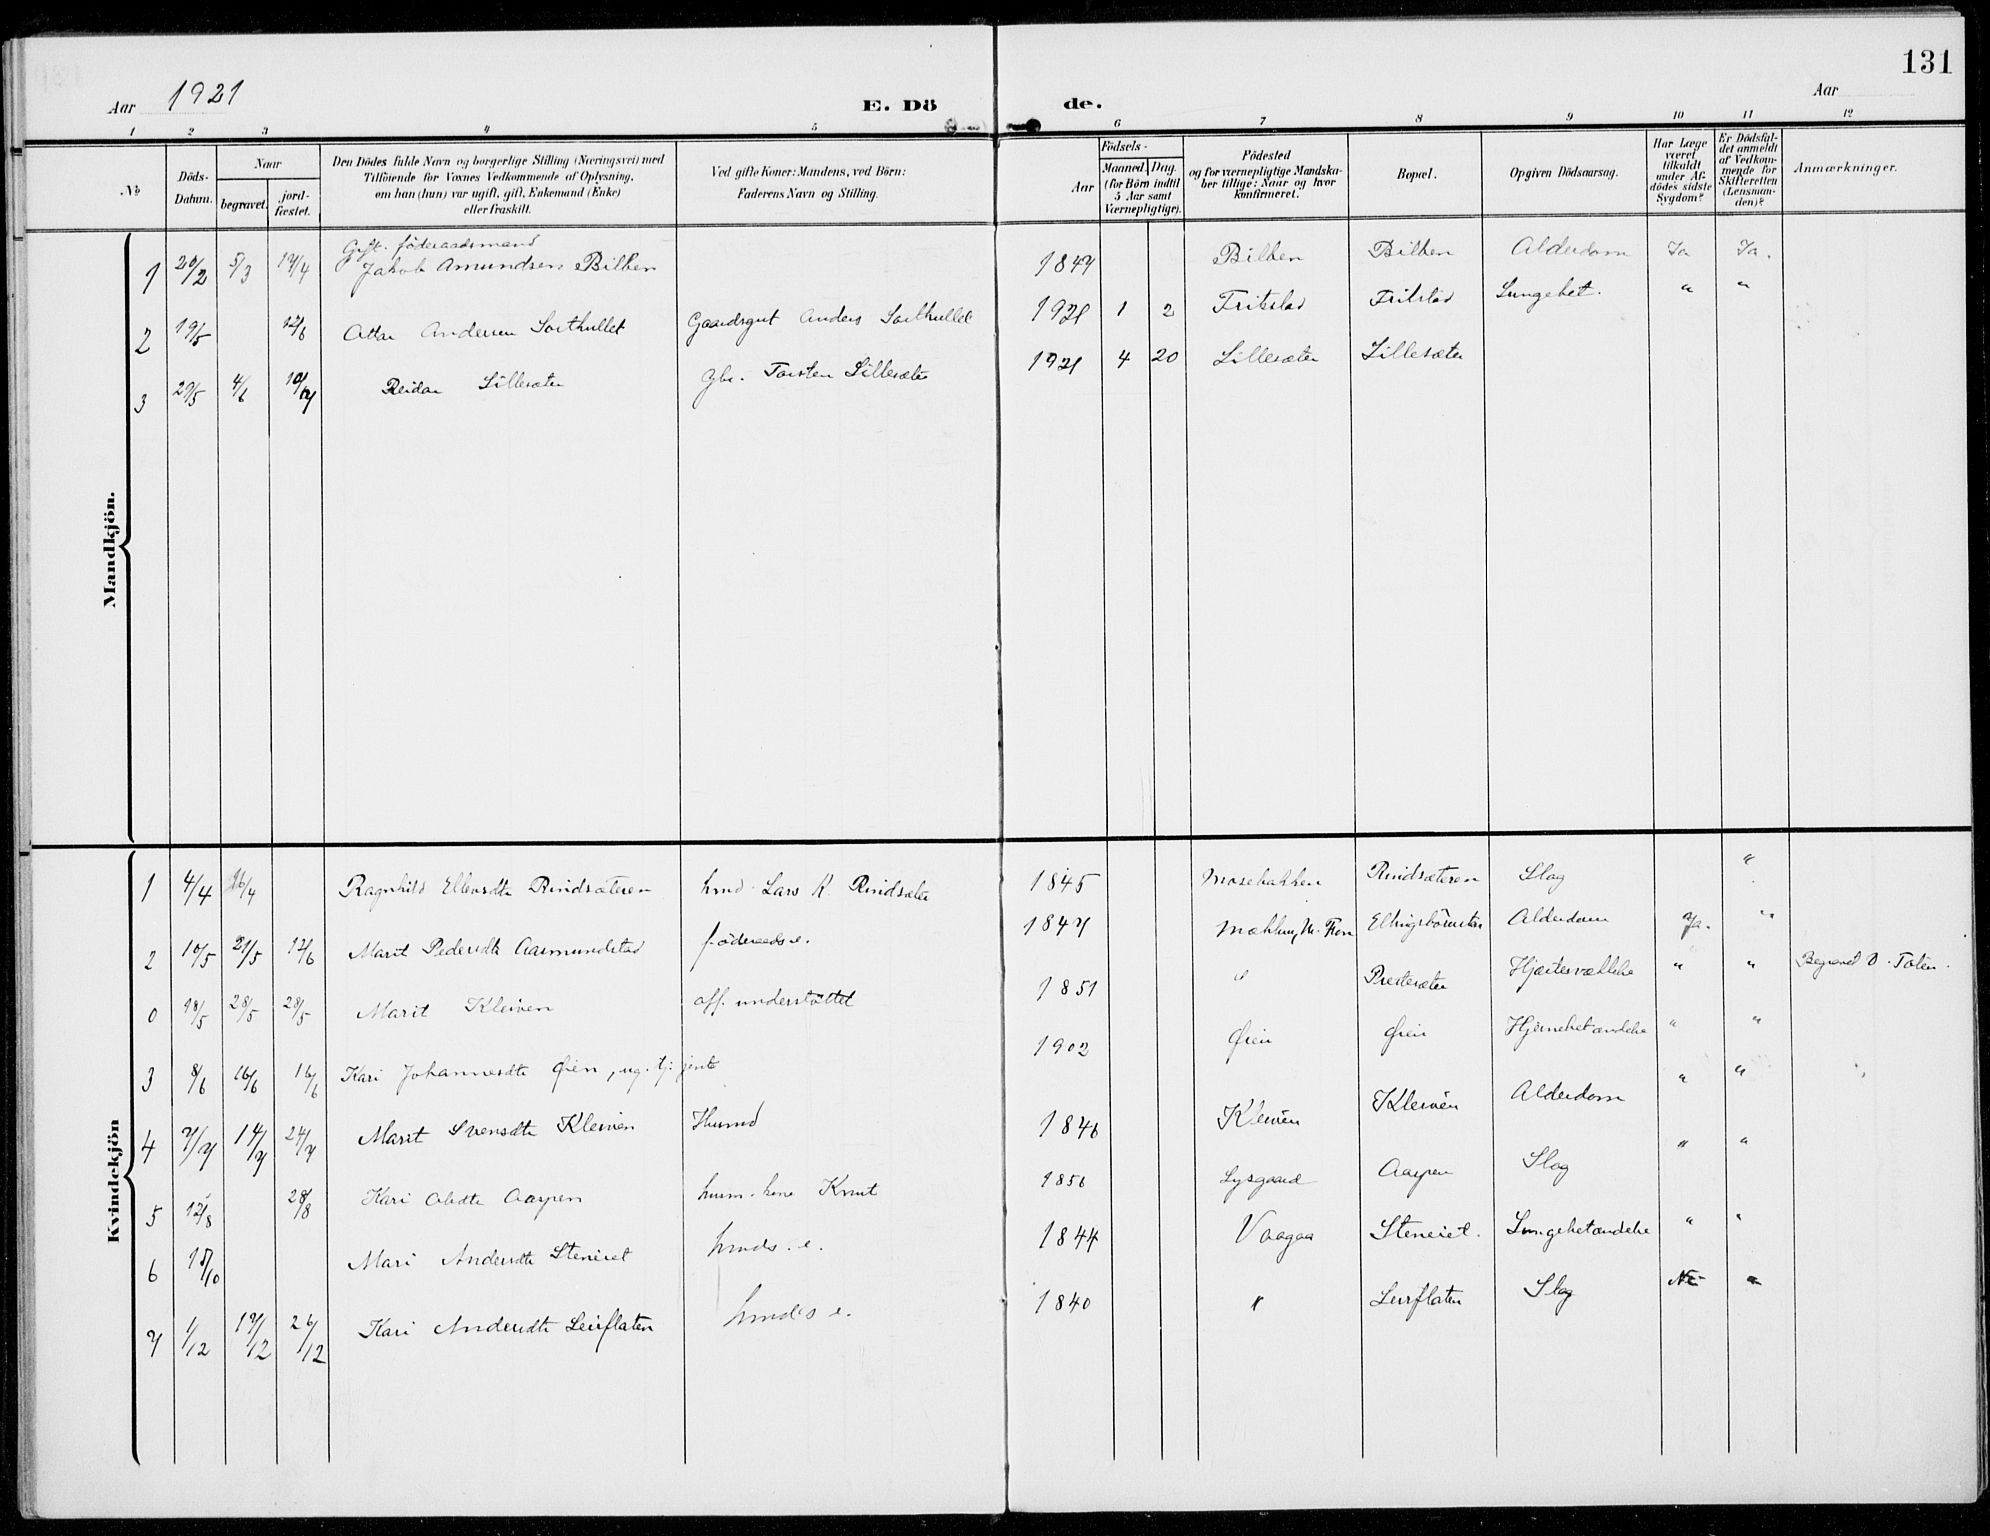 131
Aar 1921
E. Dö de.
Aar
1 2 3 4 5 6 7 8 9 10 11 12
No
Döds-
Datum.
Naar
begravet.
jord-
fæstet.
Den Dödes fulde Navn og borgerlige Stilling (Næringsvei) med
Tilföiende for Voxnes Vedkommende af Oplysning,
om han (hun) var ugift, gift, Enkemand (Enke)
eller fraskilt.
Ved gifte Koner: Mandens, ved Börn:
Faderens Navn og Stilling.
Födsels-
Aar
Maaned. Dag.
(for Börn indtil
5 Aar samt
Værnepligtige).
Födested
og for værnepligtige Mandska-
ber tillige: Naar og hvor
konfirmeret.
Bopæl.
Opgiven Dödsaarsag.
Har Læge
været
tilkaldt
under Af-
dödes sidste
Sygdom?
Er Dödsfal-
det anmeldt
af Vedkom-
mende for
Skifteretten
(Lensman-
den)?
Anmærkninger.
Mandkjön.
Gift. föderaadsmand
1 20/2 5/3 17/4 Jakob Amundsen Bilben 1847 Bilben Bilben Alderdom Ja Ja.
2 19/5 12/6 Ottar Andersen Sorthullet Gaardsgut Anders Sorthullet 1921 1 2 Fritstad Fritstad Lungebet. " "
3 29/5 4/6 10/7 Reidar Lillesæter Gbr. Torsten Lillesæter 1921 4 20 Lillesæter Lillesæter
Kvindekjön
1 4/4 16/4 Ragnhild Ellensdtr Rindsæteren hmd Lars K. Rindsæter 1845 Mosebakken Rindsæteren Slag "
2 10/5 21/5 12/6 Marit Pedersdtr Aasmundstad föderaadse. 1847 N. Fron Alderdom Ja. "
0 18/5 28/5 28/5 Marit Kleiven off. understöttet 1851 " Prestesæter Hjertesvækkelse " " Begravet Ö. Toten.
3 8/6 16/6 16/6 Kari Johannesdtr Øien, ug. tj. jente 1902 Øien Øien Hjernebetændelse " "
4 7/7 14/7 24/7 Marit Svensdtr Kleiven Husmd 1846 Kleiven Kleivën Alderdom " "
5 12/8 28/8 Kari Olsdtr Aaspen husm. kone Knut 1856 Lysgaard Aaspen Slag " "
6 15/10 Mari Andersdtr Steneiet hmds. e. 1844 Vaagaa Steneiet. Lungebetændelse " "
7 1/12 17/12 26/12 Kari Andersdtr Leirflaten hmds e. 1840 " Leirflaten Slag Nei "